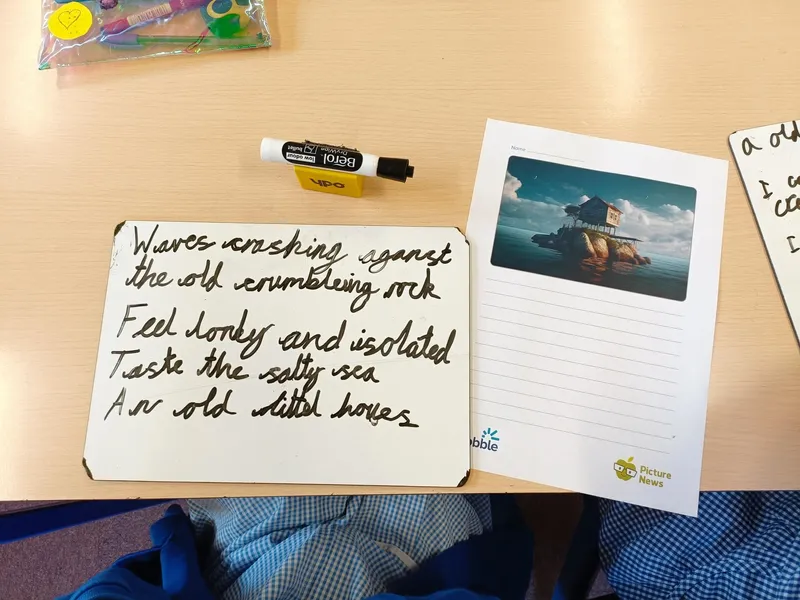 Waves crashing aganst
the old crumbleing rock
Feel lonley and isolated
Taste the salty sea
An old littel houes
Name
Berol
DryWipe
bullet
low odour
Picture
News
a old
I
I